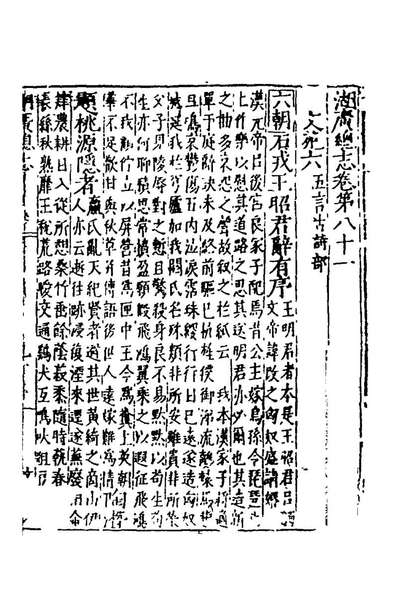 湖廣總志卷第八十一
文苑六 五言古詩部
六朝石戎王昭君辭有序 王明君者本是王昭君以觸
文帝諱改之匈奴盛請婚
漢元帝以後宮良家子配焉昔公主嫁烏孫令琵琶馬
上作樂以慰其道路之思其送明君亦必爾也其造新
之曲多哀怨之聲故叙之於紙云 我本漢家子將適
單于庭辭決未及終前驅已抗旌僕御涕流離轅馬悲
且鳴哀鬱傷五內泣淚霑珠纓行行日已遠遂造匈奴
城延我於穹廬加我閼氏名殊類非所安雖貴非所榮
父子見陵辱對之慙且驚殺身良不易默默以苟生苟
生亦何聊積思常憤盈願假飛鴻翼乘之以遐征飛鴻
不我顧佇立以屏營昔為匣中玉今為糞上英朝
華不足歡甘與秋草并傳語後世人遠嫁難為情陶潛
題桃源隱者 嬴氏亂天紀賢者避其世黃綺之商山伊
人亦云逝往跡浸復湮來逕遂蕪廢相命
肆農耕日入從所憩桑竹垂餘蔭菽稷隨時藝春
長絲秋熟靡王稅荒路曖交通鷄犬互鳴吠俎豆